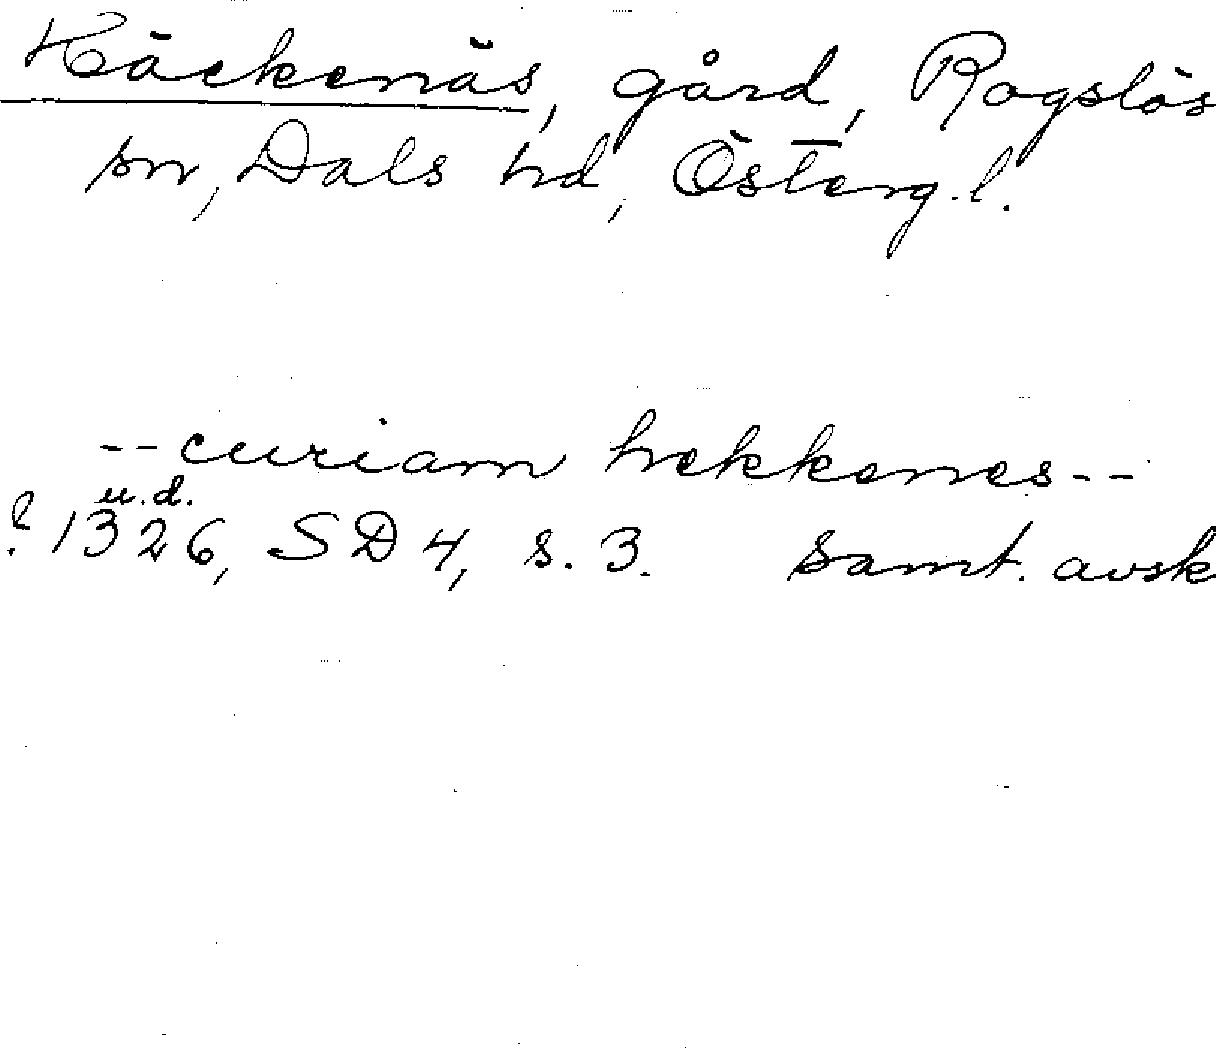 Häckenäs, gård, Rogslös
sn, Dals hd, Österg.l.
--curiam hekkenes--
u.d.
? 1326, SD 4, s. 3. Samt. avsk